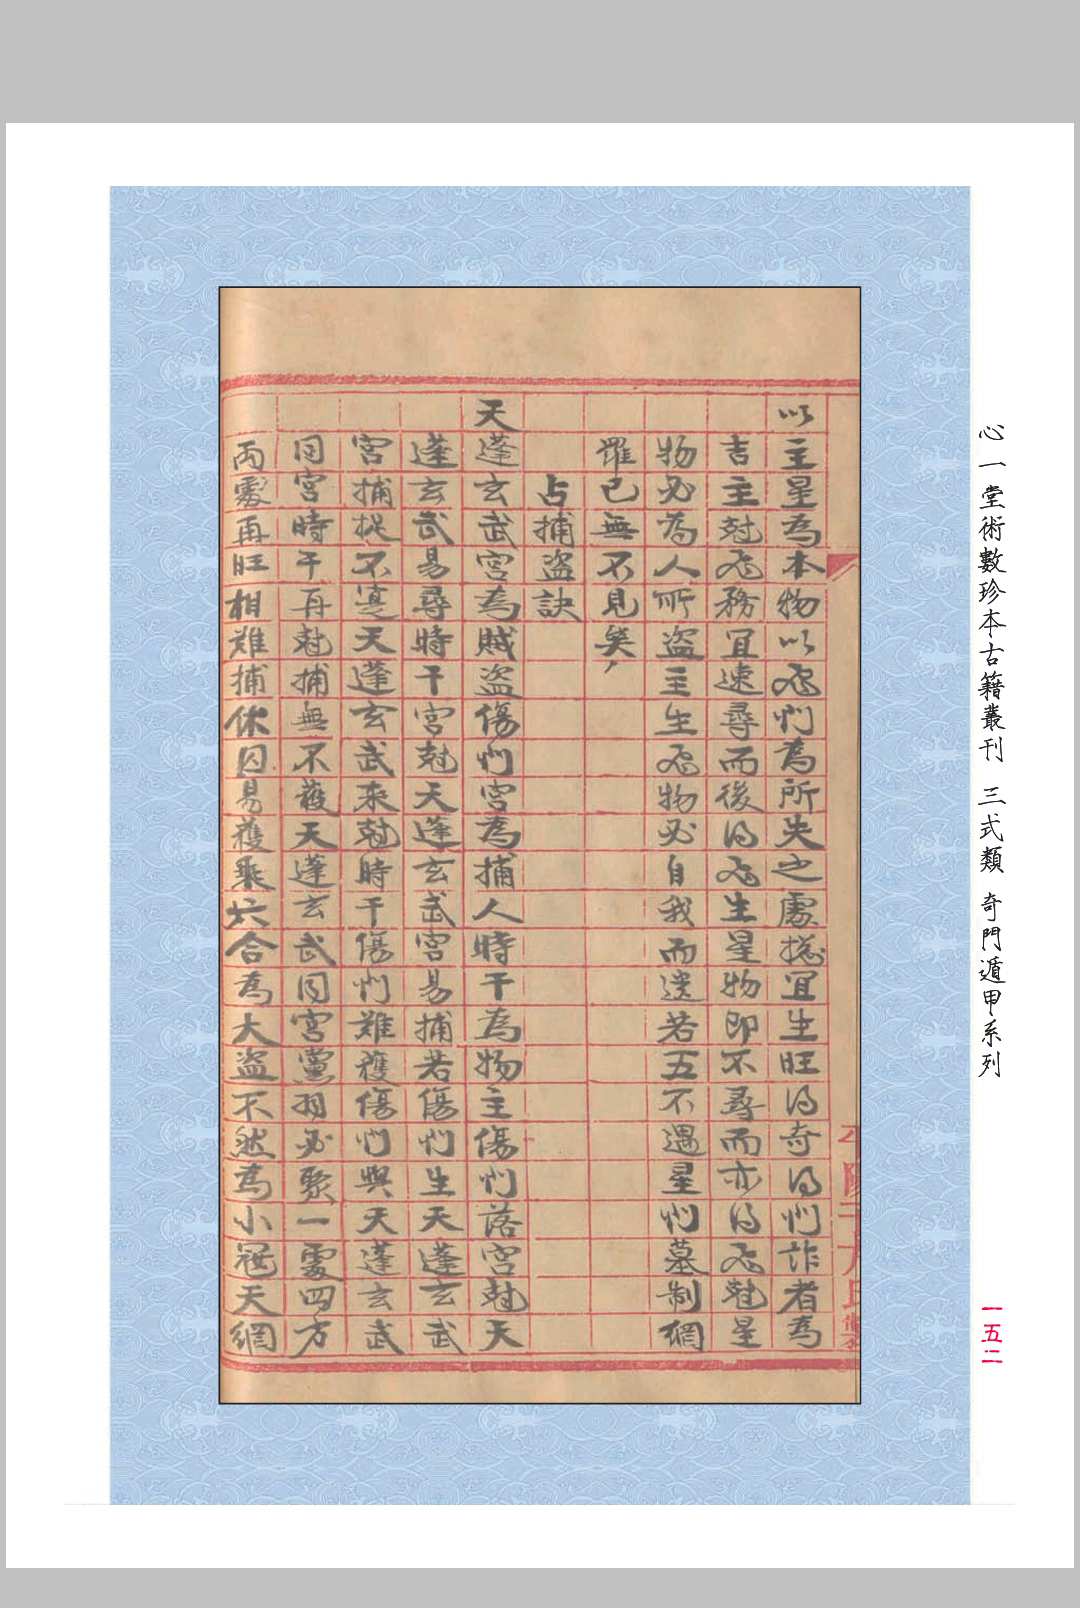 以主星為本物以飛门為所失之處揔宜生旺得奇得门詐者為
吉主尅飛務宜速尋而後得飛生星物即不尋而亦得飛尅星
物必為人所盜主生飛物必自我而遺若五不遇星门墓制網
羅已無不見矣
占捕盜訣
天蓬玄武宮為賊盜傷门宮為捕人時干為物主傷门落宮尅天
蓬玄武易尋時干宮尅天蓬玄武宮易捕若傷门生天蓬玄武
宮捕捉不寔天蓬玄武來尅時干傷门難獲傷门與天蓬玄武
同宮時干再尅捕無不獲天蓬玄武同宮黨羽必聚一處四方
兩處再旺相難捕休囚易獲乘六合為大盜不然為小寇天網
心一堂術數珍本古籍叢刊 三式類 奇門遁甲系列
一五二